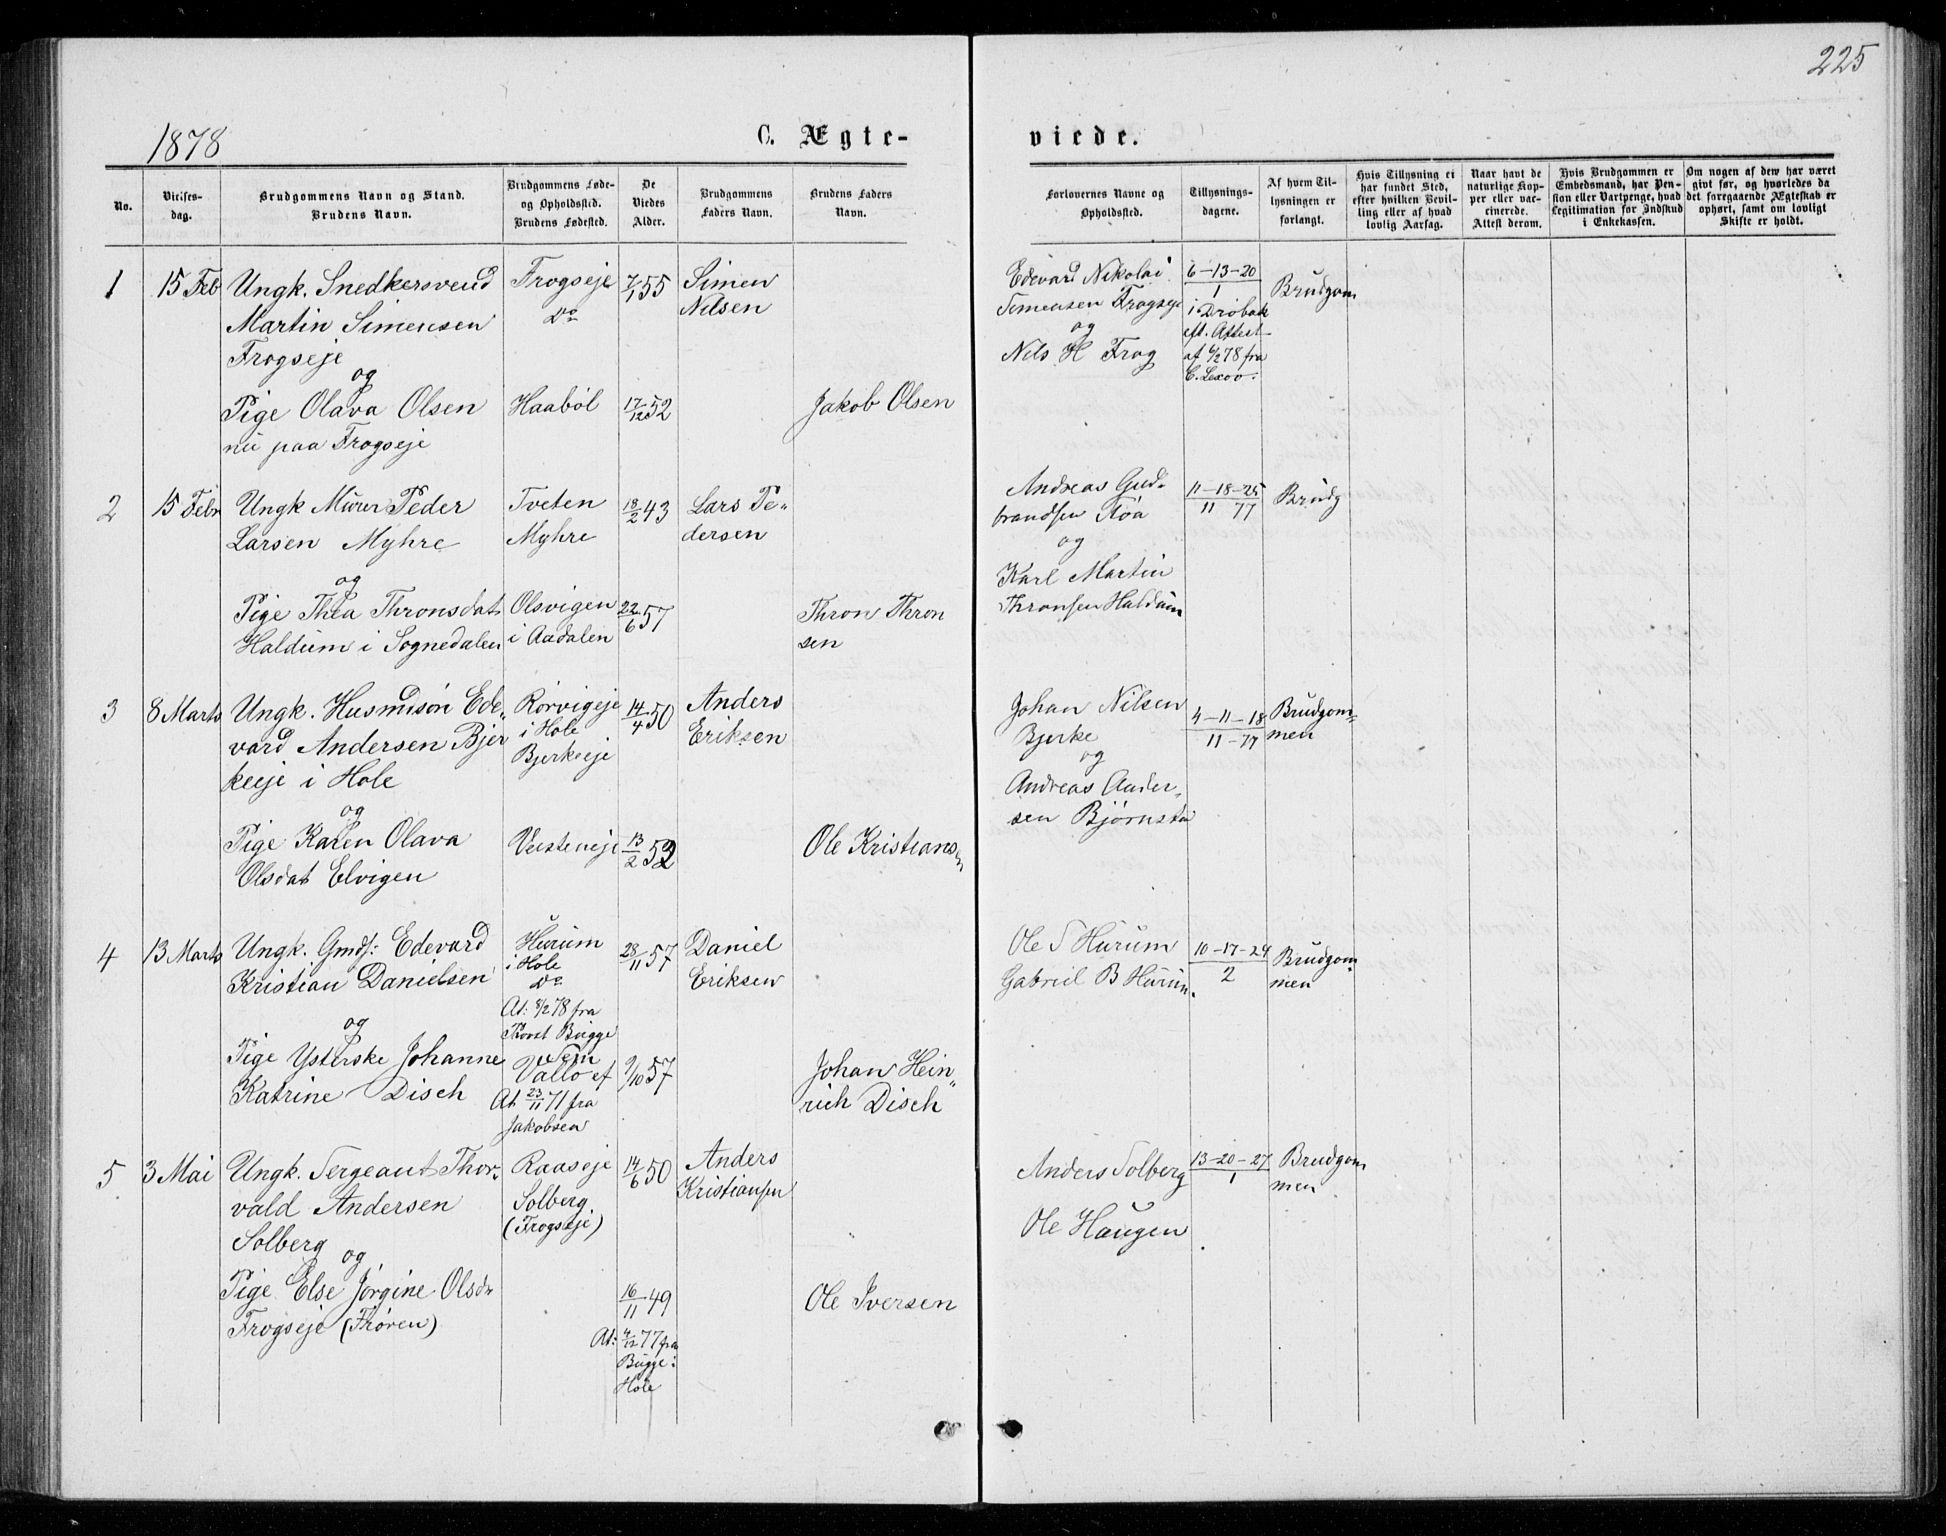 225
1878
C. Ægte-
viede.
No.
Vielses-
dag.
Brudgommens Navn og Stand.
Brudens Navn.
Brudgommens Føde-
og Opholdssted.
Brudens Fødested.
De
Viedes
Alder.
Brudgommens
Faders Navn.
Brudens Faders
Navn.
Forlovernes Navne og
Opholdssted.
Tillysnings-
dagene.
Af hvem Til-
lysningen er
forlangt.
Hvis Tillysning ei
har fundet Sted,
efter hvilken Bevil-
ling eller af hvad
lovlig Aarsag.
Naar havt de
naturlige Kop-
per eller vac-
cinerede.
Attest derom.
Hvis Brudgommen er
Embedsmand, har Pen-
sion eller Vartpenge, hvad
Legitimation for Indskud
i Enkekassen.
Om nogen af dem har været
givt før, og hvorledes da
det foregaaende Ægteskab er
ophørt, samt om lovligt
Skifte er holdt.
1
15 Feb
Ungk. Snedkersvend
Martin Simensen
Frogseje
og
Pige Olava Olsen
nu paa Frogseje
Frogseje
Do
Haaböl
7/1 55
17/12 52
Simen
Nilsen
Jakob Olsen
Edevard Nikolai
Simensen Frogseje
og
Nils H Frog
6-13-20
1
i Dröbak
eft. Attest
af 6/2 78 fra
C. Lexow.
Brudgom
2
15 Febr
Ungk Murer Peder
Larsen Myhre
og
Pige Thea Thronsdat
Haldum i Sognedalen
Tveten
Myhre
Olsvigen
i Aadalen
18/2 43
22/6 57
Lars Pe-
dersen
Thron Thron
sen
Andreas Gud-
brandsen Röa
og
Karl Martin
Thronsen Haldum
11-18-25
11 77
Brudg
3
8 Marts
Ungk. Husmdsön Ede-
vard Andersen Bjer
keeje i Hole
og
Pige Karen Olava
Olsdat Elvigen
Rörvigeje
i Hole
Bjerkeeje
Vesteneje
14/4 50
13/2 52
Anders
Eriksen
Ole Kristians
en
Johan Nilsen
Bjerke
og
Andreas Ander-
sen Björnsta
4-11-18
11-77
Brudgom-
men
4
13 Marts
Ungk. Gmds: Edevard
Kristian Danielsen
og
Pige Ysterske Johanne
Katrine Disch
Hurum
i Hole
Do
At: 8/2 78 fra
Provst Bugge
Sem
Vallö ef
At 23/11 71 fra
Jakobsen
28/11 57
9/10 57
Daniel
Eriksen
Johan Hein-
rich Disch
Ole S Hurum
Gabriel B Hurum.
10-17-24
2
Brudgom-
men
5
3 Mai
Ungk. Sergeant Thor-
vald Andersen
Solberg
og
Pige Else Jörgine Olsdr
Frogseje (Thoren)
Raaseje
Solberg
(Frogseje)
14/6 50
16/11 49
At: 4/12 77 fra
Bugge:
Hole
Anders
Kristiansen
Ole Iversen
Anders Solberg
Ole Haugen
13-20-27
1
Brudgom
men